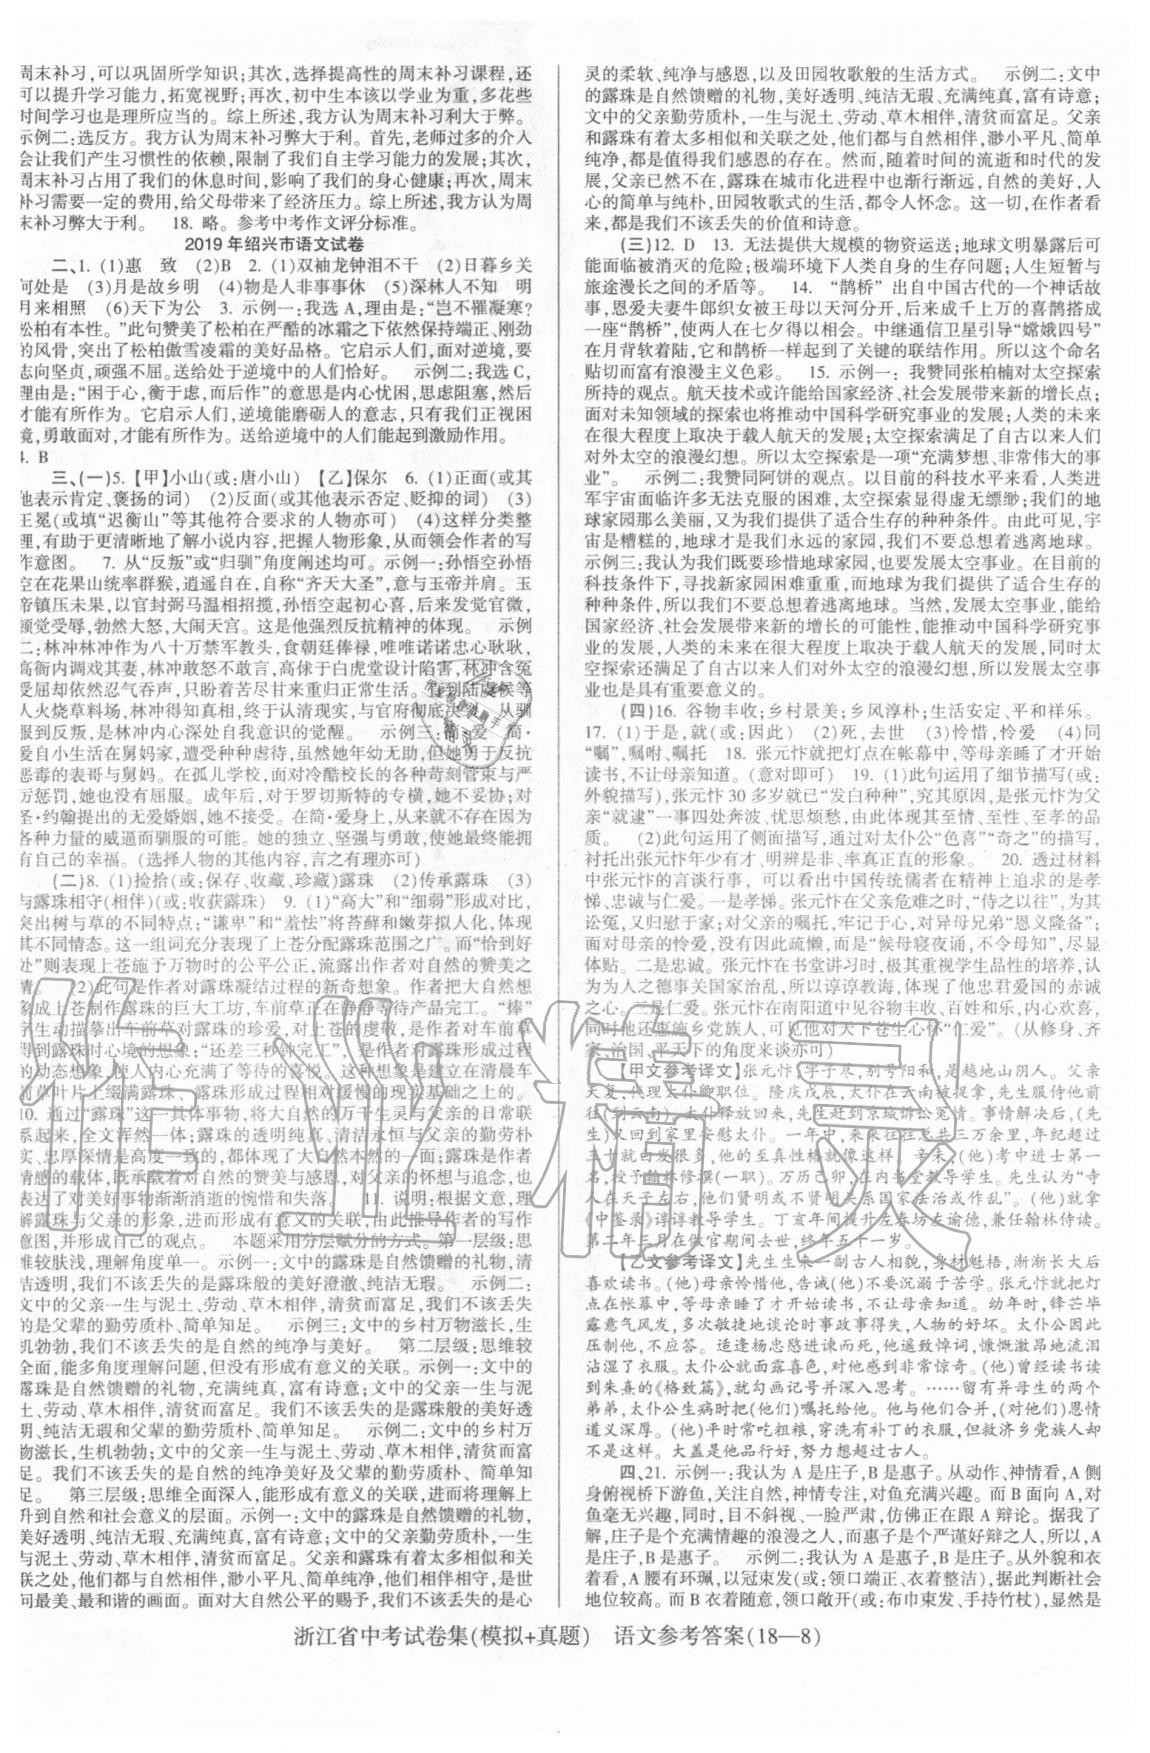 周末补习,可以巩固所学知识;其次,选择提高性的周末补习课程,还
可以提升学习能力,拓宽视野;再次,初中生本该以学业为重,多花些
时间学习也是理所应当的。综上所述,我方认为周末补习利大于弊。
示例二:选反方。我方认为周末补习弊大于利。首先,老师过多的介入
会让我们产生习惯性的依赖,限制了我们自主学习能力的发展;其次,
周末补习占用了我们的休息时间,影响了我们的身心健康;再次,周末
补习需要一定的费用,给父母带来了经济压力。综上所述,我方认为周
末补习弊大于利。 18. 略。参考中考作文评分标准。
2019 年绍兴市语文试卷
二、1. (1)惠 致 (2)B 2. (1)双袖龙钟泪不干 (2)日暮乡关
何处是 (3)月是故乡明 (4)物是人非事事休 (5)深林人不知 明
月来相照 (6)天下为公 3. 示例一:我选 A,理由是:“岂不罹凝寒?
松柏有本性。”此句赞美了松柏在严酷的冰霜之下依然保持端正、刚劲
的风骨,突出了松柏傲雪凌霜的美好品格。它启示人们,面对逆境,要
志向坚贞,顽强不屈。送给处于逆境中的人们恰好。 示例二:我选 C,
理由是:“困于心,衡于虑,而后作”的意思是内心忧困,思虑阻塞,然后
才能有所作为。它启示人们,逆境能磨砺人的意志,只有我们正视困
境,勇敢面对,才能有所作为。送给逆境中的人们能起到激励作用。
4. B
三、(一)5.【甲】小山(或:唐小山) 【乙】保尔 6. (1)正面(或其
他表示肯定、褒扬的词) (2)反面(或其他表示否定、贬抑的词) (3)
王冕(或填“迟衡山”等其他符合要求的人物亦可) (4)这样分类整
理,有助于更清晰地了解小说内容,把握人物形象,从而领会作者的写
作意图。 7. 从“反叛”或“归驯”角度阐述均可。示例一:孙悟空孙悟
空在花果山统率群猴,逍遥自在,自称“齐天大圣”,意与玉帝并肩。玉
帝镇压未果,以官封弼马温相招揽,孙悟空起初心喜,后来发觉官微,
顿觉受辱,勃然大怒,大闹天宫。这是他强烈反抗精神的体现。 示例
二:林冲林冲作为八十万禁军教头,食朝廷俸禄,唯唯诺诺忠心耿耿,
高衙内调戏其妻,林冲敢怒不敢言,高俅于白虎堂设计陷害,林冲含冤
受屈却依然忍气吞声,只盼着苦尽甘来重归正常生活。直到陆虞候等
人火烧草料场,林冲得知真相,终于认清现实,与官府彻底决裂。从驯
服到反叛,是林冲内心深处自我意识的觉醒。 示例三:简·爱 简·
爱自小生活在舅妈家,遭受种种虐待,虽然年幼无助,但她勇于反抗
恶毒的表哥与舅妈。在孤儿学校,面对冷酷校长的各种苛刻管束与严
厉惩罚,她也没有屈服。成年后,对于罗切斯特的专横,她不妥协;对
圣·约翰提出的无爱婚姻,她不接受。在简·爱身上,从来就不存在因
各种力量的威逼而驯服的可能。她的独立、坚强与勇敢,使她最终能拥
有自己的幸福。(选择人物的其他内容,言之有理亦可)
(二)8. (1)捡拾(或:保存、收藏、珍藏)露珠 (2)传承露珠 (3)
与露珠相守(相伴)(或:收获露珠) 9. (1)“高大”和“细弱”形成对比,
突出树与草的不同特点;“谦卑”和“羞怯”将苔藓和嫩芽拟人化,体现
其不同情态。这一组词充分表现了上苍分配露珠范围之广。而“恰到好
处”则表现上苍施予万物时的公平公正,流露出作者对自然的赞美之
情。 (2)此句是作者对露珠凝结过程的新奇想象。作者把大自然想
象成打造露珠的巨大工坊,车前草正在静静等待产品完工。“捧”
字生动描摹出车前草对露珠的珍爱,对上苍的虔敬,是作者对车前草
得到露珠时心境的想象;“还差三秒钟完工”,是作者对露珠形成过程
的动态想象,使人内心充满了等待的喜悦。这种想象是建立在清晨车
前草叶片上缀满露珠、露珠形成过程相对缓慢的现实基础之上的。
10. 通过“露珠”这一具体事物,将大自然的万千生灵与父亲的日常联
系起来,全文浑然一体;露珠的透明纯真、清洁永恒与父亲的勤劳朴
实、忠厚深情是高度一致的,都体现了大自然最本真的美好;露珠是作者
情感的载体,既承载着对自然的赞美与感恩,对父亲的怀想与追念,也
表达了对美好事物渐渐消逝的惋惜和失落。 11. 说明:根据文意,理
解露珠与父亲的形象,进而形成有意义的关联,由此推导作者的写作
意图,并形成自己的观点。 本题采用分层赋分的方式。第一层级:思
维较肤浅,理解角度单一。示例一:文中的露珠是自然馈赠的礼物,
充满纯真,富有诗意,我们不该丢失的是露珠般的美好澄澈、纯洁无瑕。 示例二:
文中的父亲一生与泥土、劳动、草木相伴,清贫而富足,我们不该丢失
的是父辈的勤劳质朴、简单知足。 示例三:文中的乡村万物滋长,生
机勃勃,我们不该丢失的是自然的纯净与美好。 第二层级:思维较
全面,能多角度理解问题,但没有形成有意义的关联。示例一:文中的
露珠是自然馈赠的礼物,充满纯真,富有诗意;文中的父亲一生与泥
土、劳动、草木相伴,清贫而富足。我们不该丢失的是露珠般的美好透
明、纯洁无瑕和父辈的勤劳质朴、简单知足。 示例二:文中的乡村万
物滋长,生机勃勃;文中的父亲一生与泥土、劳动、草木相伴,清贫而富
足。我们不该丢失的是自然的纯净美好及父辈的勤劳质朴、简单知
足。 第三层级:思维全面深入,能形成有意义的关联,进而将问题上
升到自然和社会意义的层面。示例一:文中的露珠是自然馈赠的礼物,
美好透明、纯洁无瑕、充满纯真,富有诗意;文中的父亲勤劳质朴,一生
与泥土、劳动、草木相伴,清贫而富足。父亲和露珠有着太多相似和关
联之处,他们都与自然相伴,渺小平凡、简单纯净,他们相伴相守,是世
间最美、最和谐的画面。面对大自然公平的赐予,我们不该丢失的是心
灵的柔软、纯净与感恩,以及田园牧歌般的生活方式。 示例二:文中
的露珠是自然馈赠的礼物,美好透明、纯洁无瑕、充满纯真,富有诗意;
文中的父亲勤劳质朴,一生与泥土、劳动、草木相伴,清贫而富足。父亲
和露珠有着太多相似和关联之处,他们都与自然相伴,渺小平凡、简单
纯净,都是值得我们感恩的存在。然而,随着时间的流逝和时代的发
展,父亲已然不在,露珠在城市化进程中也渐行渐远,自然的美好,人
心的简单与纯朴,田园牧歌式的生活,都令人怀念。这一切,在作者看
来,都是我们不该丢失的价值和诗意。
(三)12. D 13. 无法提供大规模的物资运送;地球文明暴露后可
能面临被消灭的危险;极端环境下人类自身的生存问题;人生短暂与
旅途漫长之间的矛盾等。 14. “鹊桥”出自中国古代的一个神话故
事,恩爱夫妻牛郎织女被王母以天河分开,后来成千上万的喜鹊搭成
一座“鹊桥”,使两人在七夕得以相会。中继通信卫星引导“嫦娥四号”
在月背软着陆,它和鹊桥一样起到了关键的联结作用。所以这个命名
贴切而富有浪漫主义色彩。 15. 示例一:我赞同张柏楠对太空探索
所持的观点。航天技术或许能给国家经济、社会发展带来新的增长点;
面对未知领域的探索也将推动中国科学研究事业的发展;人类的未来
在很大程度上取决于载人航天的发展;太空探索满足了自古以来人们
对外太空的浪漫幻想。所以太空探索是一项“充满梦想、非常伟大的事
业”。 示例二:我赞同阿饼的观点。以目前的科技水平来看,人类进
军宇宙面临许多无法克服的困难,太空探索显得虚无缥缈;我们的地
球家园那么美丽,又为我们提供了适合生存的种种条件。由此可见,宇
宙是糟糕的,地球才是我们永远的家园,我们不要总想着逃离地球。
示例三:我认为我们既要珍惜地球家园,也要发展太空事业。在目前的
科技条件下,寻找新家园困难重重,而地球为我们提供了适合生存的
种种条件,所以我们不要总想着逃离地球。当然,发展太空事业,能给
国家经济、社会发展带来新的增长的可能性,能推动中国科学研究事
业的发展,人类的未来在很大程度上取决于载人航天的发展,同时太
空探索还满足了自古以来人们对外太空的浪漫幻想,所以发展太空事
业也是具有重要意义的。
(四)16. 谷物丰收;乡村景美;乡风淳朴;生活安定、平和祥乐。
17. (1)于是,就(或:因此) (2)死,去世 (3)怜惜,怜爱 (4)同
“嘱”,嘱咐、嘱托 18. 张元忭就把灯点在帐幕中,等母亲睡了才开始
读书,不让母亲知道。(意对即可) 19. (1)此句运用了细节描写(或:
外貌描写),张元忭 30 多岁就已“发白种种”,究其原因,是张元忭为父
亲“就逮”一事四处奔波、忧思烦愁,由此体现其至情、至性、至孝的品
质。 (2)此句运用了侧面描写,通过对太仆公“色喜”“奇之”的描写,
衬托出张元忭年少有才、明辨是非、率真正直的形象。 20. 透过材料
中张元忭的言谈行事,可以看出中国传统儒者在精神上追求的是孝
悌、忠诚与仁爱。一是孝悌。张元忭在父亲危难之时,“侍之以往”,为其
讼冤,又归慰于家;对父亲的嘱托,牢记于心,对异母兄弟“恩义隆备”;
面对母亲的怜爱,没有因此疏懒,而是“候母寝夜诵,不令母知”,尽显
体贴。二是忠诚。张元忭在书堂讲习时,极其重视学生品性的培养,认
为为人之德事关国家治乱,所以谆谆教诲,体现了他忠君爱国的赤诚
之心。三是仁爱。张元忭在南阳道中见谷物丰收、百姓和乐,内心欢喜,
同时他还惠施乡党族人,可见他对天下苍生心怀“仁爱”。(从修身、齐
家、治国、平天下的角度来谈亦可)
【甲文参考译文】张元忭,字子荩,别号阳和,是越地山阴人。父亲
天复,代理太仆卿职位。隆庆戊辰,太仆公被逮捕到云南,先生服侍他前
往(到云南),太仆释放回来,先生赶到京城诉讼冤情。事情解决后,(先
生)又回到家里安慰太仆。一年中,来来往往总共三万余里,年纪超过
三十就白发很多,他的至真性格就像这样。辛未,(他)考中进士第一
名,授予翰林修撰(一职)。万历己卯,在内书堂教导学生。先生认为“寺
人在天子左右,他们贤明或不贤明关系国家法治或作乱”。(他)就拿
《中鉴录》谆谆教导学生。丁亥年间提升左春坊左谕德,兼任翰林侍读。
第二年三月在做官期间去世,终年五十一岁。
【乙文参考译文】先生生来一副古人相貌,身材魁梧,渐渐长大后
喜欢读书。(他)母亲怜惜他,告诫(他)不要沉溺于苦学。张元忭就把灯
点在帐幕中,等母亲睡了才开始读书,不让母亲知道。幼年时,锋芒毕
露意气风发,多次敏捷地谈论时事政事得失,人物的好坏。太仆公故意
压制他,不应答。适逢杨忠愍进谏而死,他遥致悼词,慷慨激昂地流泪
沾湿了衣服。太仆公就面露喜色,对他感到非常惊奇。(他)曾经读书读
到朱熹的《格致篇》,就勾画记号并深入思考。……留有异母生的两个
弟弟,太仆公生病时把(他们)嘱托给他。他与他们合并,(对他们)恩情
道义深厚。(他)平时常吃粗粮,穿洗有补丁的衣服,但救济乡党族人却
不吝啬。大盖是他践行好的品行,努力想超过古人。
四、21. 示例一:我认为 A 是庄子,B 是惠子。从动作、神情看,A 侧
身俯视桥下游鱼,关注自然,神情专注,对鱼充满兴趣。而 B 面向 A,对
鱼毫无兴趣,同时,目不斜视、一脸严肃,仿佛正在跟 A 辩论。据我了
解,庄子是个充满情趣的浪漫之人,而惠子是个严谨好辩之人,所以,A
是庄子,B 是惠子。 示例二:我认为 A 是惠子,B 是庄子。从外貌和衣
着看,A 腰有环珮,以冠束发(或:领口端正、衣着整洁),据此判断社会
地位较高。而 B 衣着随意,领口敞开(或:布巾束发、手持竹杖),显然是
浙江省中考试卷集(模拟+真题) 语文参考答案(18—8)
作业精灵